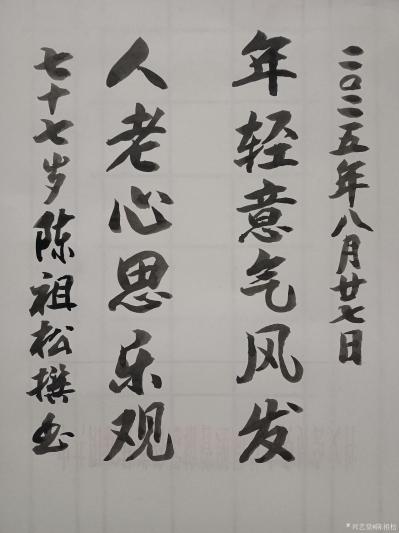 二〇二五年八月廿七日
年轻意气风发
人老心思乐观
七十七岁陈祖松撰书